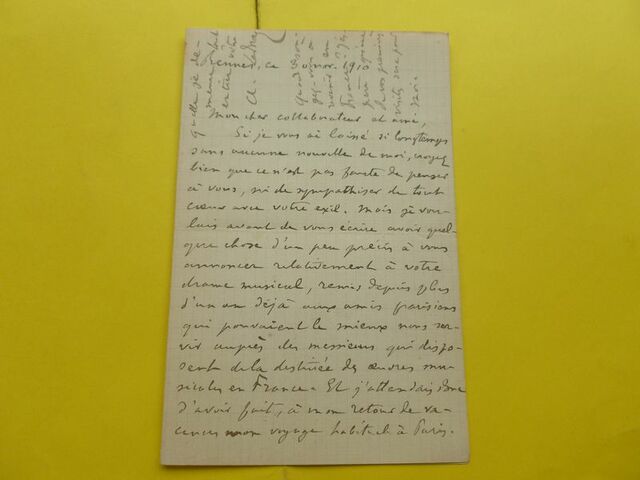 Rennes, ce 6 nov. 1910
Mon cher collaborateur et ami,
Si je vous ai laissé si longtemps
sans aucune nouvelle de moi, croyez
bien que ce n'est pas faute de penser
à vous, ni de sympathiser de tout
cœur avec votre exil. Mais je vou-
lais avant de vous écrire avoir quel-
que chose d'un peu précis à vous
annoncer relativement à votre
drame musical, remis depuis plus
d'un an déjà aux amis parisiens
qui pouvaient le mieux nous ser-
vir auprès des messieurs qui dispo-
sent de la destinée des œuvres mu-
sicales en France. Et j'attendais donc
d'avoir fait, à mon retour de va-
cances mon voyage habituel à Paris.
quelle je de-
meure
votre
A.
Quand
vous
revenir en
France? J'es-
père
de vos premières
visites sera pour
moi.